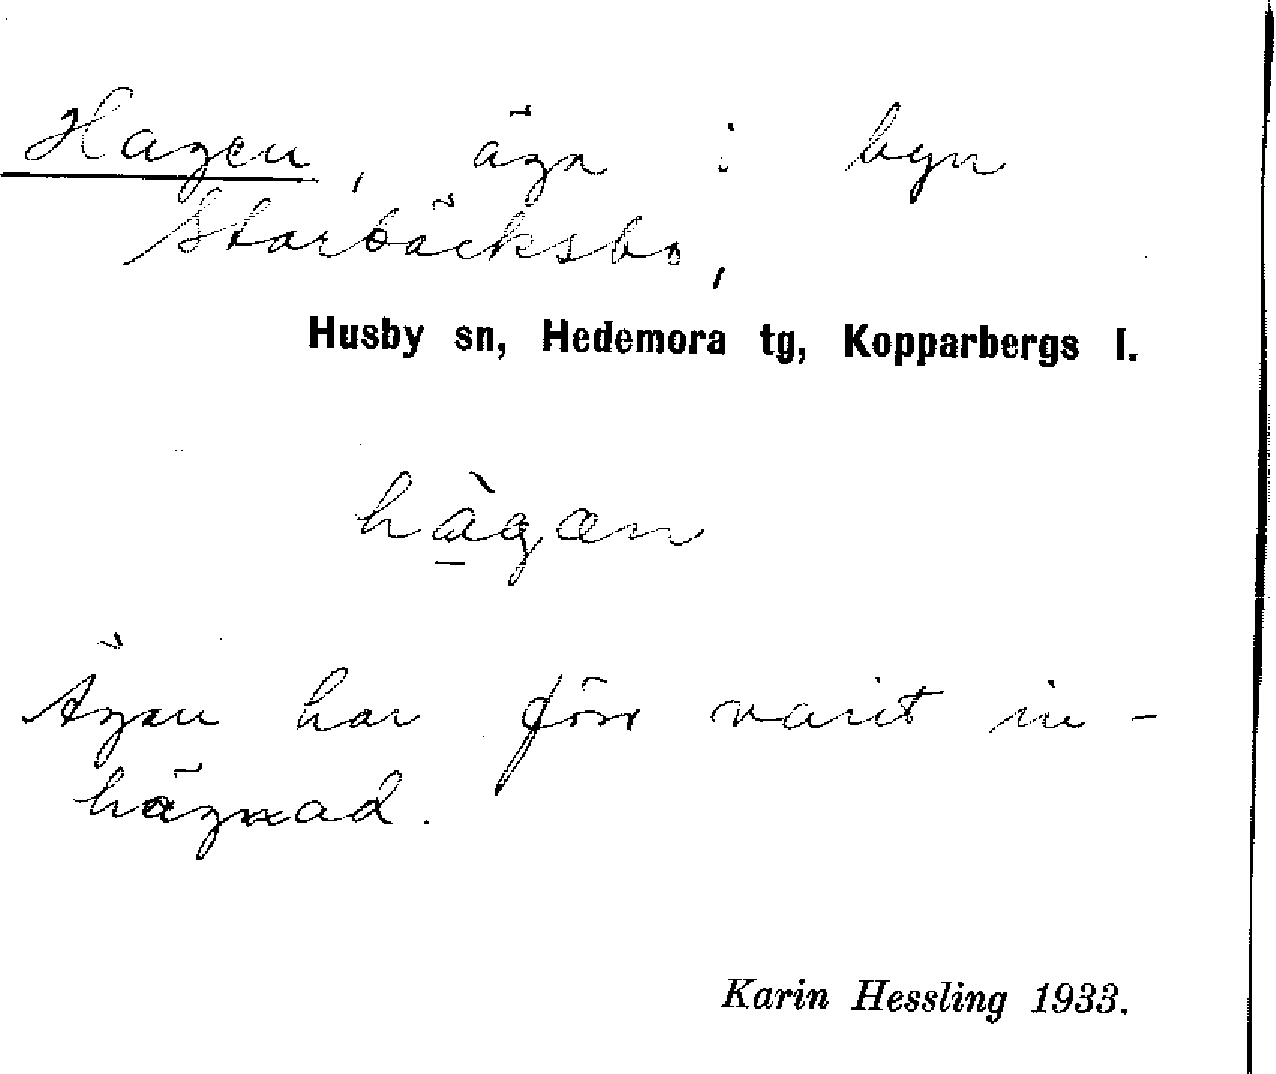 Hagen, äga i byn
Starbäcksbo,
Husby sn, Hedemora tg, Kopparbergs l.
hàgæn
Ägan har förr varit in-
hägnad.
Karin Hessling 1933.